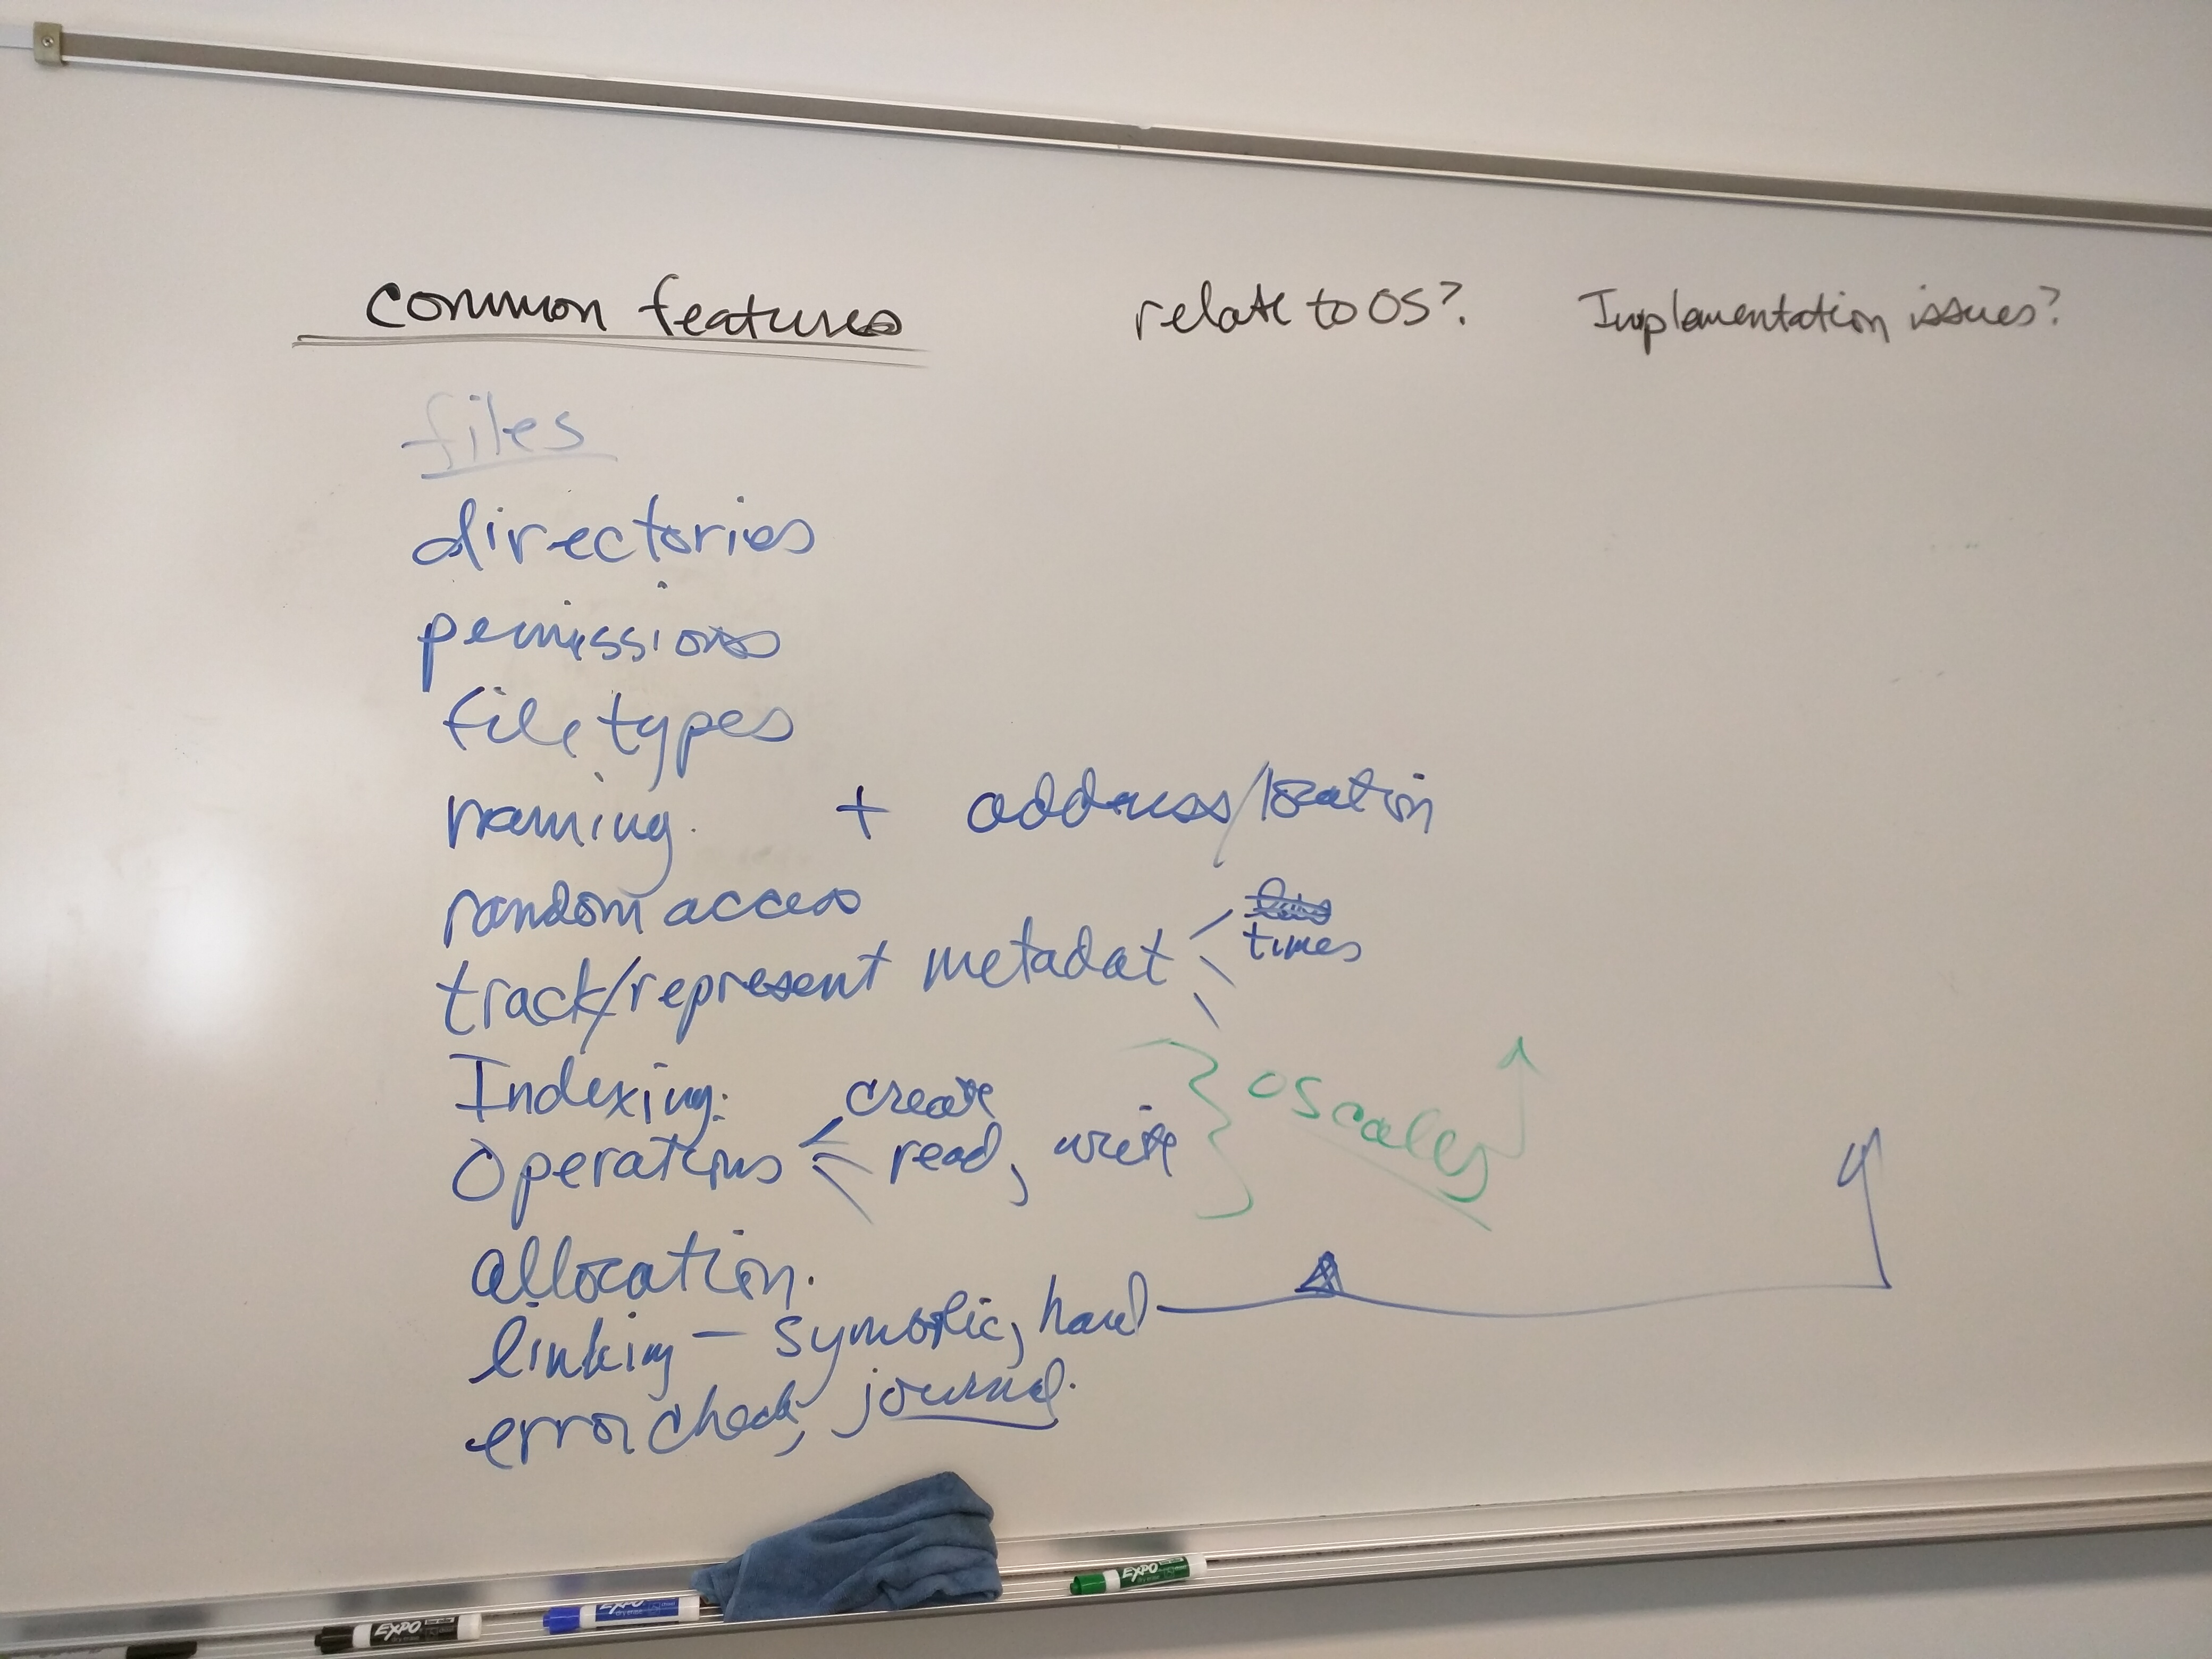 common features relate to OS? Implementation issues?
files
directories
permissions
file types
naming. + address/location
random access
track/represent metadat times
Indexing:
create
Operations read, write
OS calls
allocation.
linking - symbolic, hard
error check, journal.
EXPO
EXPO
EXPO